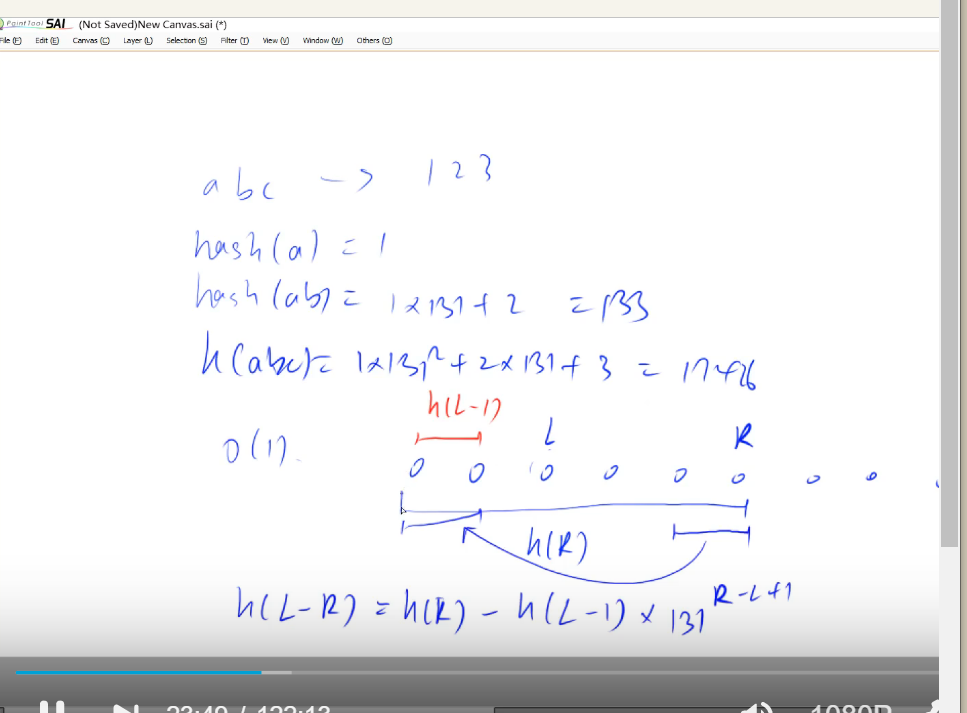 PaintTool SAI (Not Saved)New Canvas.sai (*)
File (F) Edit (E) Canvas (C) Layer (L) Selection (S) Filter (T) View (V) Window (W) Others (O)
abc -> 123
hash(a) = 1
hash(ab) = 1×131+2 = 133
h(abc) = 1×131²+2×131+3 = 17426
h(L-1)
O(1). L R
0 0 0 0 0 0 0 0
h(R)
h(L-R) = h(R) - h(L-1) × 131^R-L+1
23:49 / 122:13 1080P